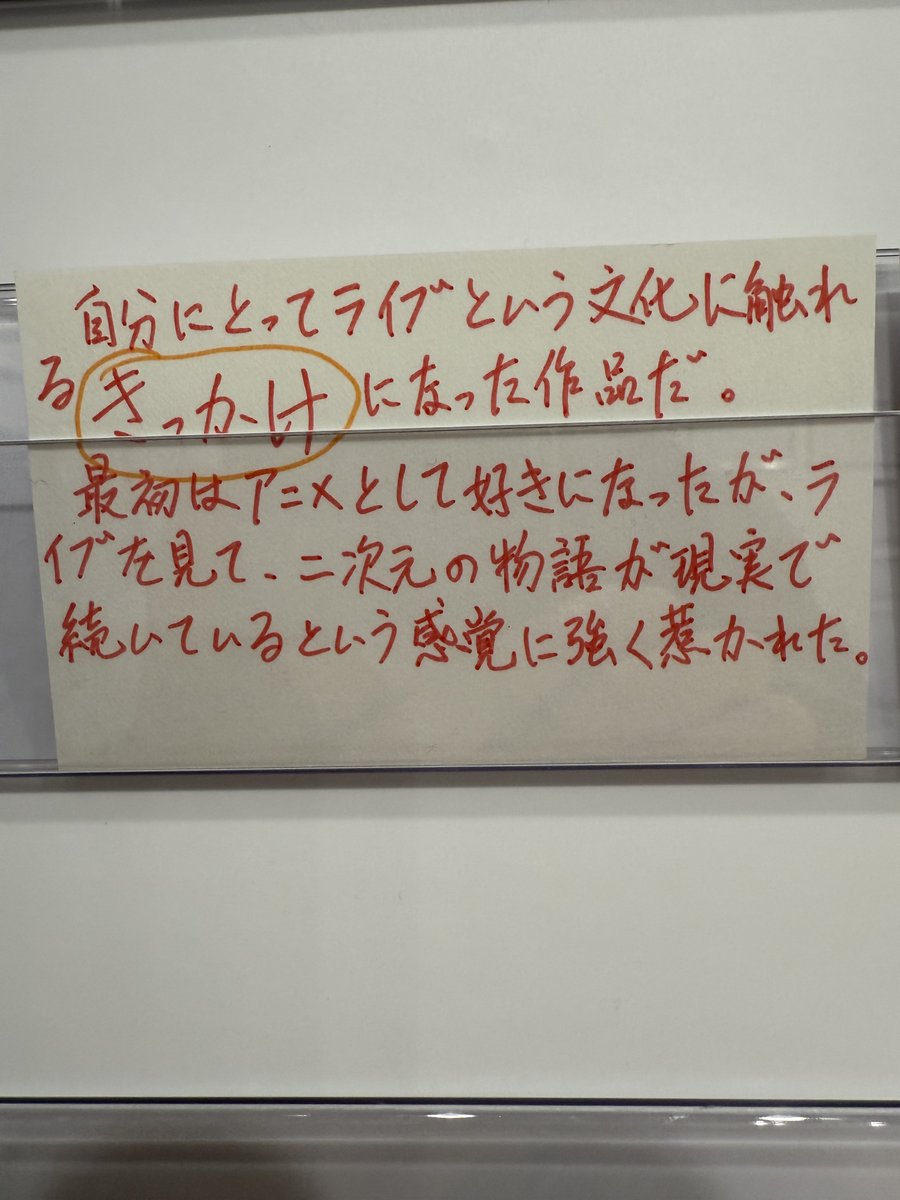 自分にとってライブという文化に触れ
るきっかけになった作品だ。
最初はアニメとして好きになったが、ラ
イブを見て、二次元の物語が現実で
続いているという感覚に強く惹かれた。